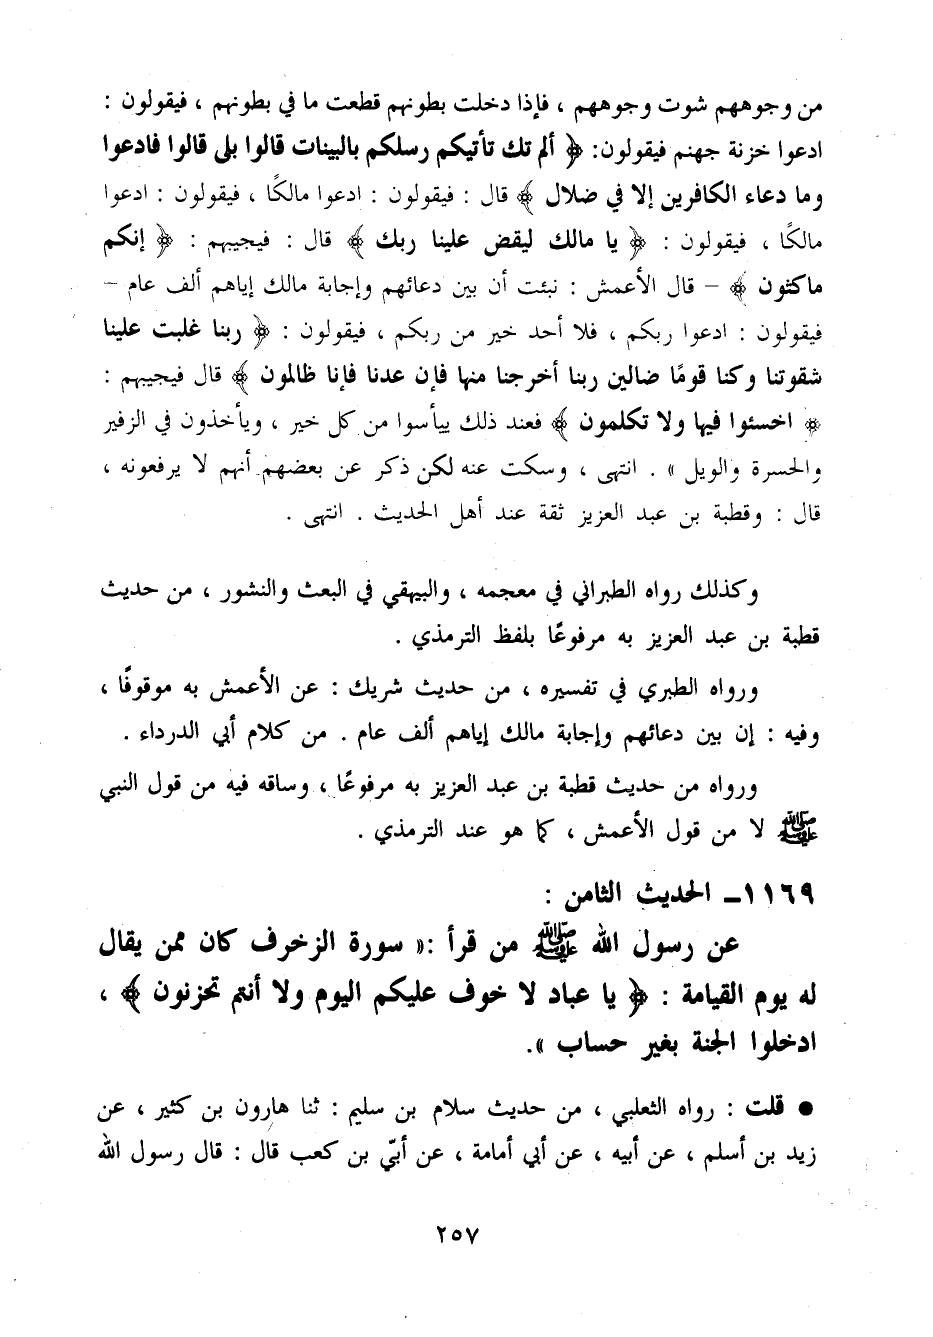 من وجوههم شوت وجوههم ، فإذا دخلت بطونهم قطعت ما في بطونهم ، فيقولون :
ادعوا خزنة جهنم فيقولون: ﴿ ألم تك تأتيكم رسلكم بالبينات قالوا بلى قالوا فادعوا
وما دعاء الكافرين إلا في ضلال ﴾ قال : فيقولون : ادعوا مالكًا ، فيقولون : ادعوا
مالكًا ، فيقولون : ﴿ يا مالك ليقض علينا ربك ﴾ قال : فيجيبهم : ﴿ إنكم
ماكثون ﴾ – قال الأعمش : نبئت أن بين دعائهم وإجابة مالك إياهم ألف عام –
فيقولون : ادعوا ربكم ، فلا أحد خير من ربكم ، فيقولون : ﴿ ربنا غلبت علينا
شقوتنا وكنا قومًا ضالين ربنا أخرجنا منها فإن عدنا فإنا ظالمون ﴾ قال فيجيبهم :
﴿ اخسئوا فيها ولا تكلمون ﴾ فعند ذلك ييأسوا من كل خير ، ويأخذون في الزفير
والحسرة والويل » . انتهى ، وسكت عنه لكن ذكر عن بعضهم أنهم لا يرفعونه ،
قال : وقطبة بن عبد العزيز ثقة عند أهل الحديث . انتهى .
وكذلك رواه الطبراني في معجمه ، والبيهقي في البعث والنشور ، من حديث
قطبة بن عبد العزيز به مرفوعًا بلفظ الترمذي .
ورواه الطبري في تفسيره ، من حديث شريك : عن الأعمش به موقوفًا ،
وفيه : إن بين دعائهم وإجابة مالك إياهم ألف عام . من كلام أبي الدرداء .
ورواه من حديث قطبة بن عبد العزيز به مرفوعًا ، وساقه فيه من قول النبي
ﷺ لا من قول الأعمش ، كما هو عند الترمذي .
١١٦٩ – الحديث الثامن :
عن رسول الله ﷺ من قرأ :« سورة الزخرف كان ممن يقال
له يوم القيامة : ﴿ يا عباد لا خوف عليكم اليوم ولا أنتم تحزنون ﴾ ،
ادخلوا الجنة بغير حساب ».
● قلت : رواه الثعلبي ، من حديث سلام بن سليم : ثنا هارون بن كثير ، عن
زيد بن أسلم ، عن أبيه ، عن أبي أمامة ، عن أبيّ بن كعب قال : قال رسول الله
٢٥٧